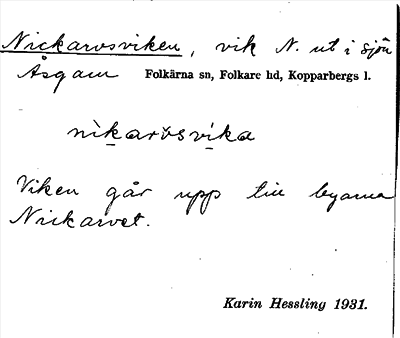 Nickarvsviken, vik N. ut i sjön
Åsgarn Folkärna sn, Folkare hd, Kopparbergs l.
nìkarvsvìka
Viken går upp till byarna
Nickarvet.
Karin Hessling 1931.